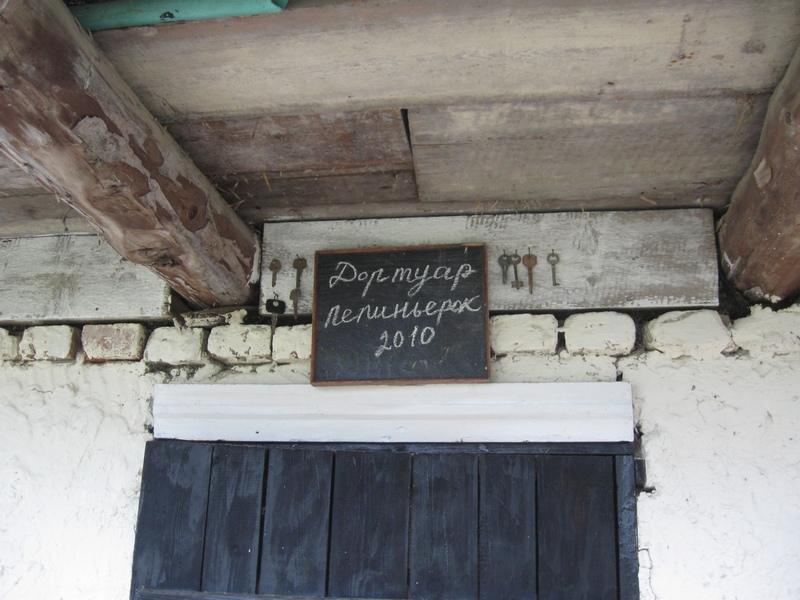 Дортуар
пепиньерок
2010